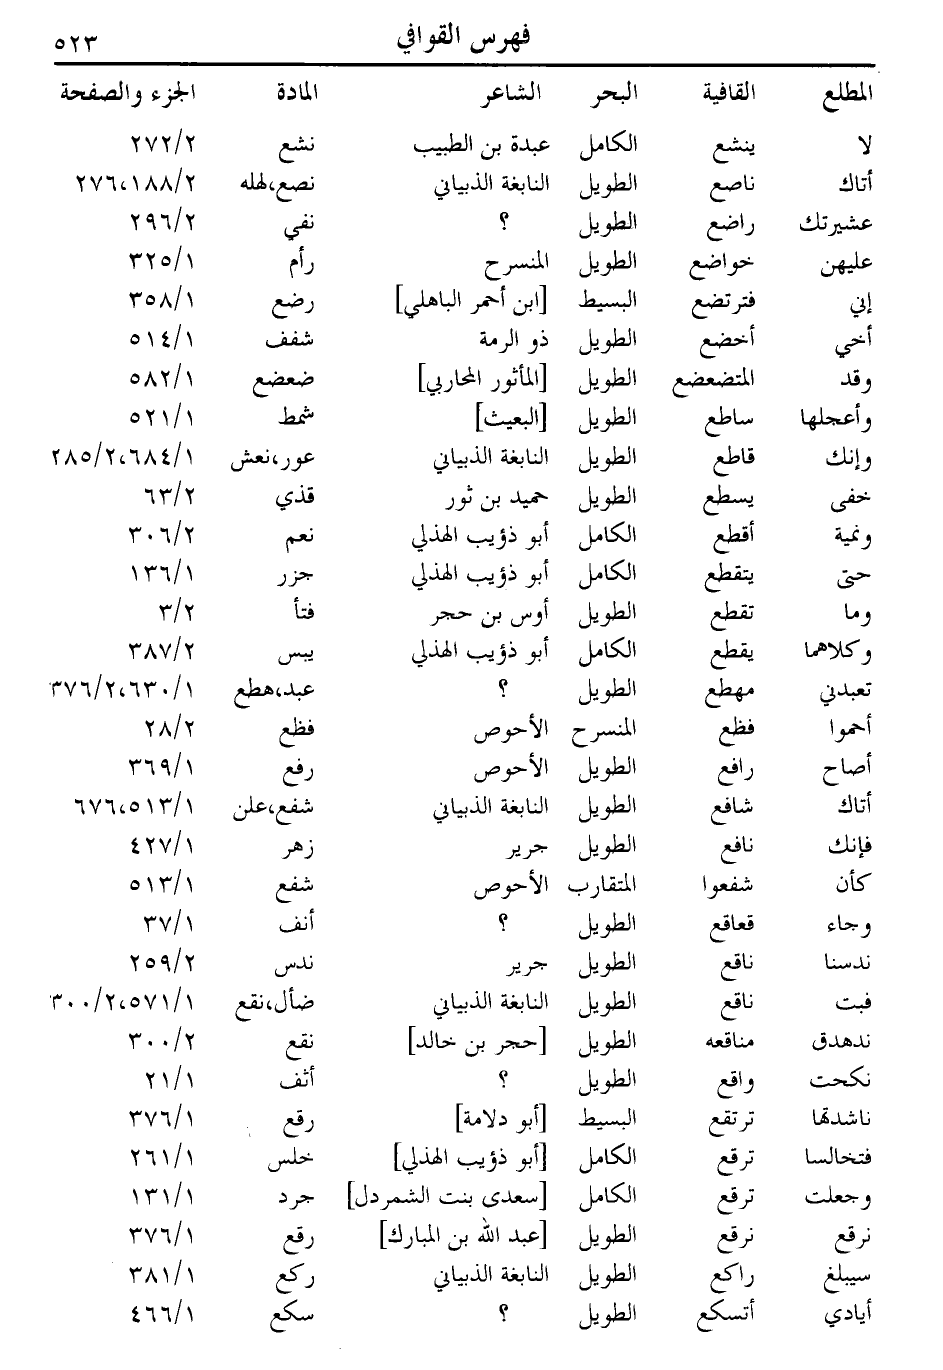 فهرس القوافي ٥٢٣
المطلع القافية البحر الشاعر المادة الجزء والصفحة
لا ينشع الكامل عبدة بن الطبيب نشع ٢٧٢/٢
أتاك ناصع الطويل النابغة الذبياني نصع،لهله ٢٧٦،١٨٨/٢
عشيرتك راضع الطويل ؟ نفي ٢٩٦/٢
عليهن خواضع الطويل المنسرح رأم ٣٢٥/١
إني فترتضع البسيط [ابن أحمر الباهلي] رضع ٣٥٨/١
أخي أخضع الطويل ذو الرمة شفف ٥١٤/١
وقد المتضعضع الطويل [المأثور المحاربي] ضعضع ٥٨٢/١
وأعجلها ساطع الطويل [البعيث] شمط ٥٢١/١
وإنك قاطع الطويل النابغة الذبياني عور،نعش ٢٨٥/٢،٦٨٤/١
خفى يسطع الطويل حميد بن ثور قذي ٦٣/٢
ونمية أقطع الكامل أبو ذؤيب الهذلي نعم ٣٠٦/٢
حتى يتقطع الكامل أبو ذؤيب الهذلي جزر ١٣٦/١
وما تقطع الطويل أوس بن حجر فتأ ٣/٢
وكلاهما يقطع الكامل أبو ذؤيب الهذلي يبس ٣٨٧/٢
تعبدني مهطع الطويل ؟ عبد،هطع ٣٧٦/٢،٦٣٠/١
أحموا فظع المنسرح الأحوص فظع ٢٨/٢
أصاح رافع الطويل الأحوص رفع ٣٦٩/١
أتاك شافع الطويل النابغة الذبياني شفع،علن ٦٧٦،٥١٣/١
فإنك نافع الطويل جرير زهر ٤٢٧/١
كأن شفعوا المتقارب الأحوص شفع ٥١٣/١
وجاء قعاقع الطويل ؟ أنف ٣٧/١
ندسنا ناقع الطويل جرير ندس ٢٥٩/٢
فبت ناقع الطويل النابغة الذبياني ضأل،نقع ٣٠٠/٢،٥٧١/١
ندهدق مناقعه الطويل [حجر بن خالد] نقع ٣٠٠/٢
نكحت واقع الطويل ؟ أثف ٢١/١
ناشدتها ترتقع البسيط [أبو دلامة] رقع ٣٧٦/١
فتخالسا ترقع الكامل [أبو ذؤيب الهذلي] خلس ٢٦١/١
وجعلت ترقع الكامل [سعدى بنت الشمردل] جرد ١٣١/١
نرقع نرقع الطويل [عبد الله بن المبارك] رقع ٣٧٦/١
سيبلغ راكع الطويل النابغة الذبياني ركع ٣٨١/١
أيادي أتسكع الطويل ؟ سكع ٤٦٦/١